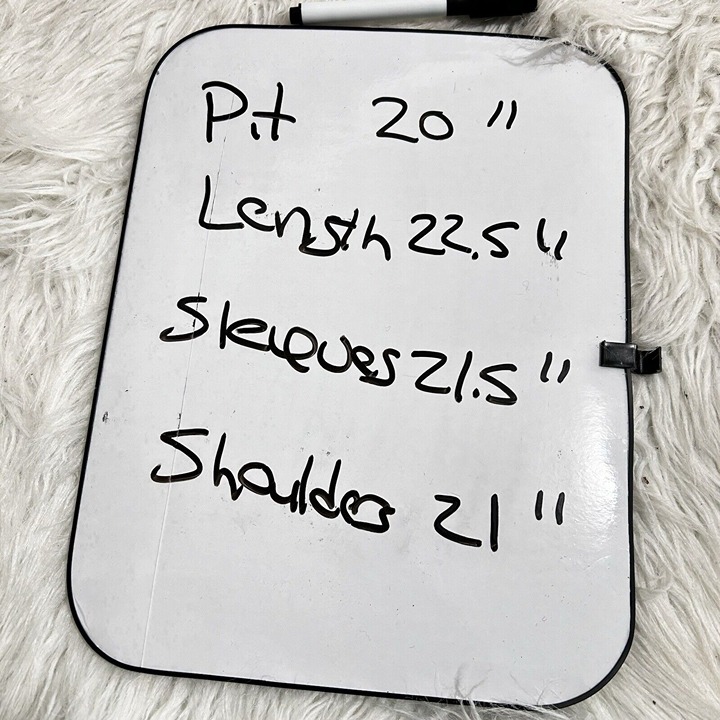 Pit 20"
Length 22.5"
Sleeves 21.5"
Shoulder 21"